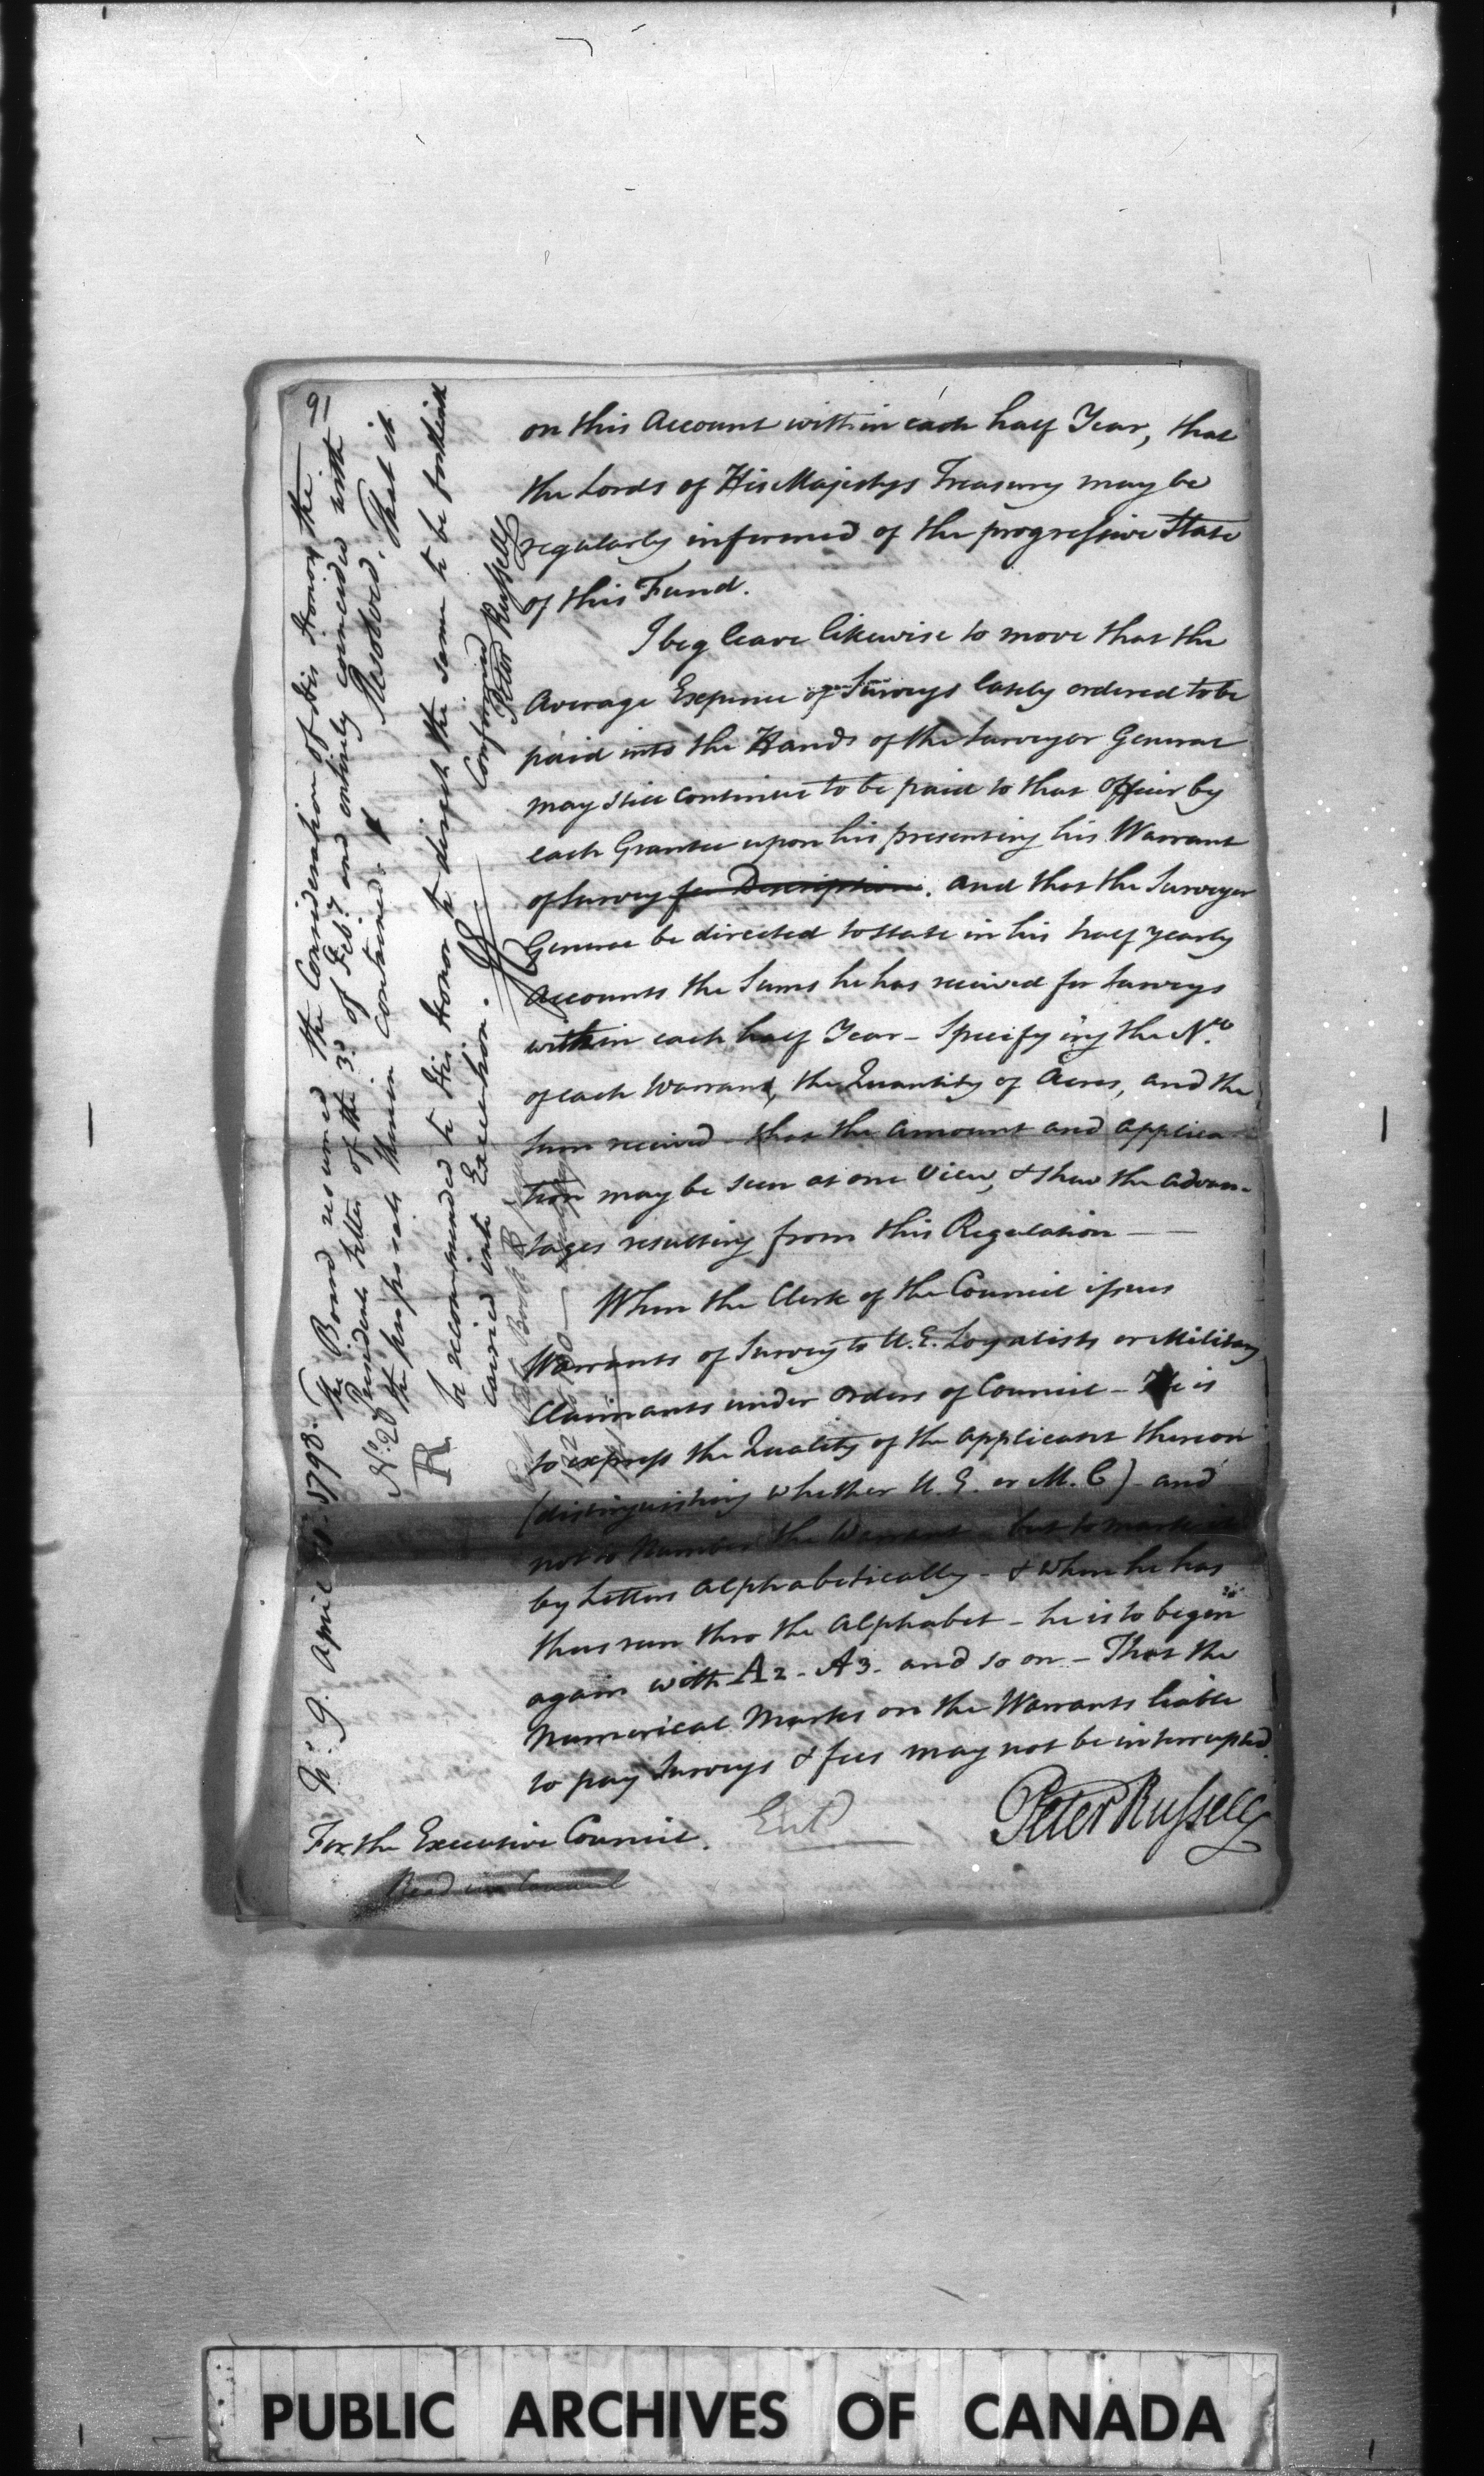 91
on this Account within each half Year, that
the Lords of His Majestys Treasury may be
regularly informed of the progressive State
of this Fund.
I beg leave likewise to move that the
Average Expence of Surveys lately ordered to be
paid into the Hands of the Surveyor General
may still continue to be paid to that Officer by
each Grantee upon his presenting his Warrant
of Survey for Description. and that the Surveyor
General be directed to state in his half yearly
Accounts the Sums he has received for Surveys
within each half Year - Specifying the No.
of each Warrant, the Quantity of Acres, and the
Sum received - that the amount and applica-
tion may be seen at one View, & shew the advan-
tages resulting from this Regulation —
When the Clerk of the Council issues
Warrants of Survey to U.E. Loyalists or Military
Claimants under orders of Council - He is
to express the Quality of the Applicant thereon
(distinguishing whether U.E. or M.C) - and
not to Number the Warrant - but to mark it
by Letters Alphabetically - & when he has
thus run thro the Alphabet - he is to begin
again with A2 - A3 - and so on - That the
Numerical Marks on the Warrants liable
to pay Surveys & fees may not be interrupted.
Peter Russell
Entd
For the Executive Council.
Read in Council
April 1798. The Board resumed the Consideration of His Honor the
No. 20 Presidents Letter of the 3d of Feby and entirely coincided with
the proposals therein contained. Resolved. That it
R be recommended to His Honor to direct the same to be forthwith
carried into Execution.
Confirmed
Peter Russell
PUBLIC ARCHIVES OF CANADA